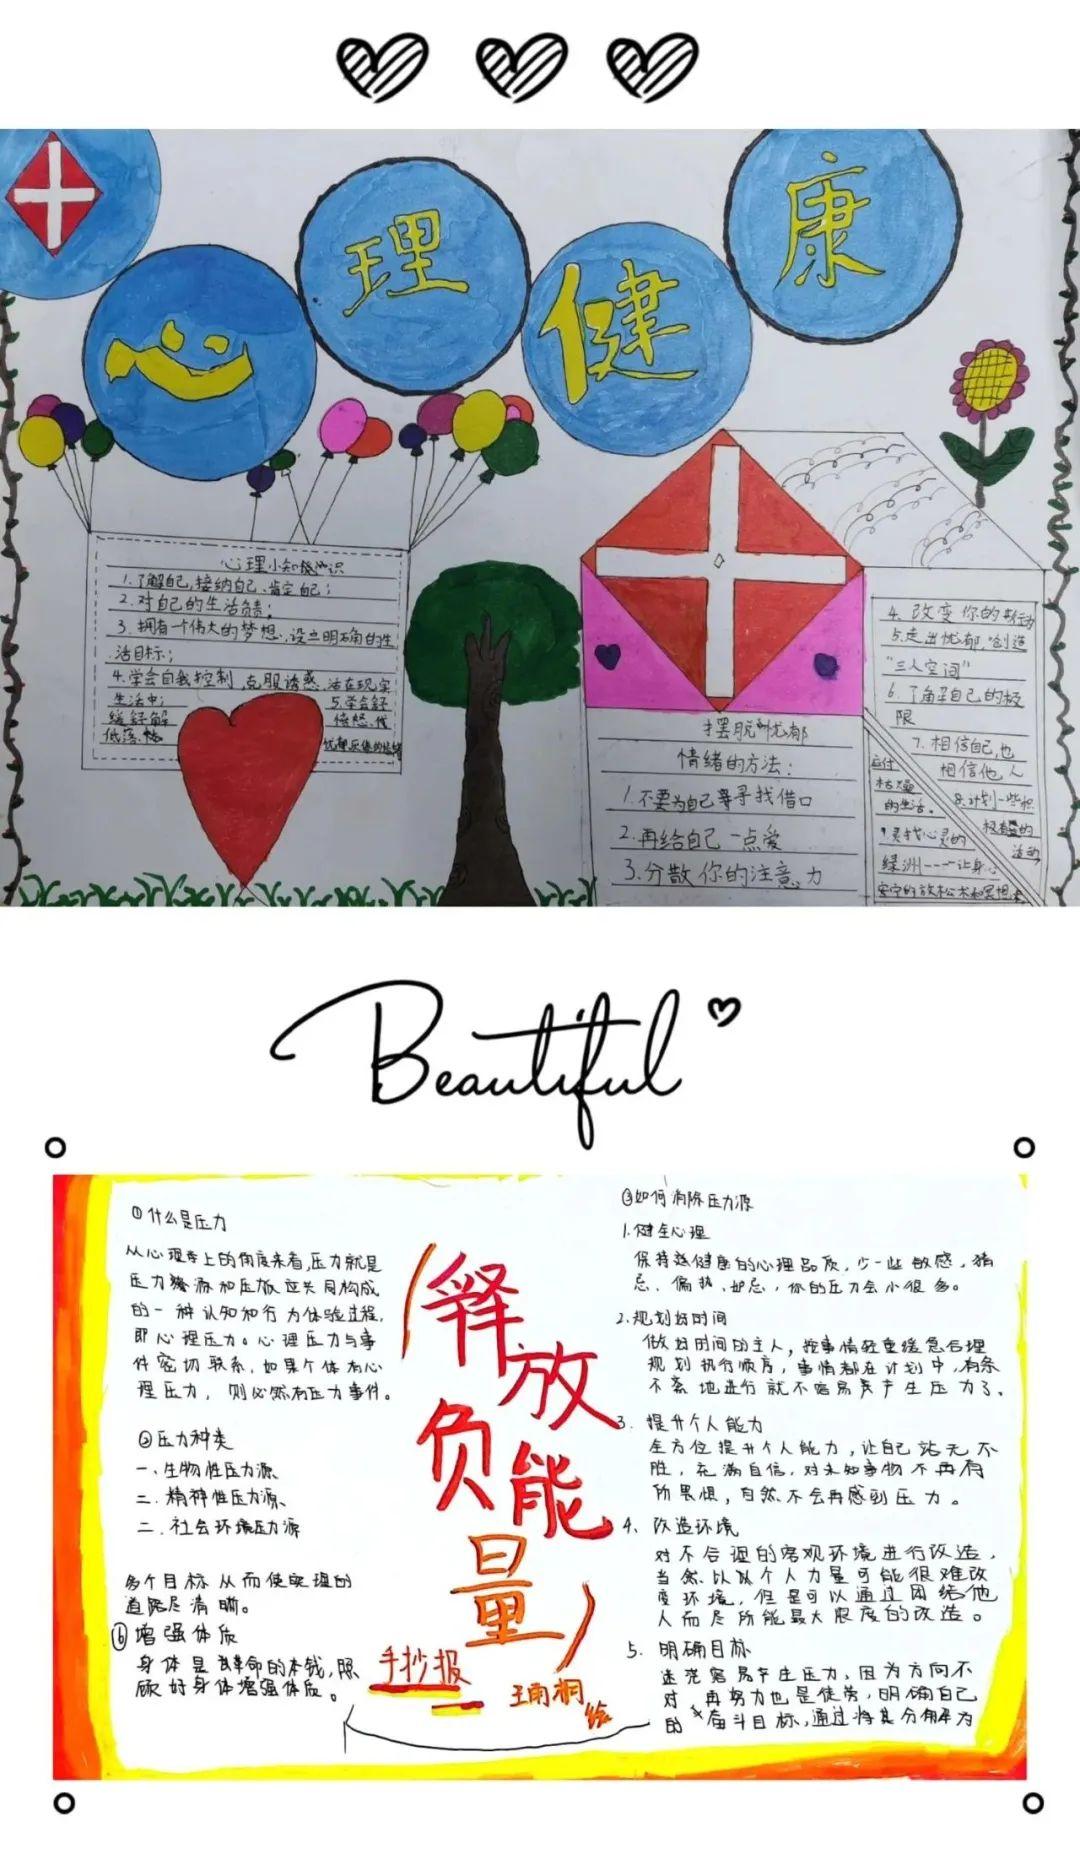 心理健康
心理小知识
1.了解自己,接纳自己、肯定自己;
2.对自己的生活负责;
3.拥有一个伟大的梦想、设立明确的生
活目标;
4.学会自我控制、克服诱惑、活在现实
生活中;
5.学会舒
缓舒解
低落、
摆脱忧郁
情绪的方法:
1.不要为自己寻找借口
2.再给自己一点爱
3.分散你的注意力
4.改变你的
5.走出忧郁,创造
“三人空间”
6.了解自己的极
限
7.相信自己,也
相信他人
8.计划一些积
极的
活动
应付
枯燥
的生活。
9.寻找心灵的
绿洲——让身心
安宁的放松术和冥想术
Beautiful
①什么是压力
从心理学上的角度来看,压力就是
压力源和压力反应共同构成
的一种认知和行为体验过程,
即心理压力。心理压力与事
件密切联系,如果个体有心
理压力,则必然有压力事件。
②压力种类
一、生物性压力源、
二.精神性压力源、
二.社会环境压力源
多个目标从而使实理的
道路尽清晰。
⑥增强体质
身体是革命的本钱,照
顾好身体增强体质。
释放
负能
量
手抄报
王雨桐
绘
③如何消除压力源
1.健全心理
保持健康的心理品质,少一些敏感,猜
忌、偏执、妒忌,你的压力会小很多。
2.规划好时间
做好时间的主人,按事情轻重缓急合理
规划执行顺序,事情都在计划中,有条
不紊地进行就不容易产生压力了。
3.提升个人能力
全方位提升个人能力,让自己战无不
胜,充满自信,对未知事物不再有
所畏惧,自然不会再感到压力。
4、改造环境
对不合理的客观环境进行改造,
当然以个人力量可能很难改
变环境,但是可以通过团结他
人而尽所能最大限度的改造。
5.明确目标
迷茫容易产生压力,因为方向不
对,再努力也是徒劳,明确自己
的奋斗目标,通过将其分解为